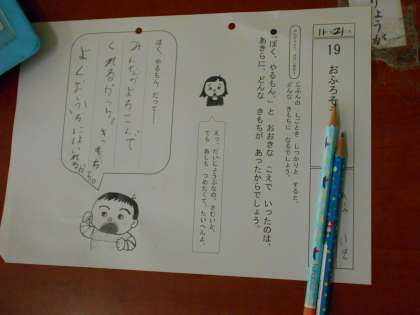 11-21
19 おふろそ
じぶんの しごとを しっかりと すると、
どんな きもちに なるでしょう。
●「ぼく、やるもん。」と おおきな こえで いったのは、
あきらに、どんな きもちが あったからでしょう。
えっ、だいじょうぶなの。さむいし、
ても あしも つめたくて、たいへんよ。
ぼく、やるもん。だって──
みんながよろこんで
くれるから。きもち
よくおうちにはいれるから。
りょうが